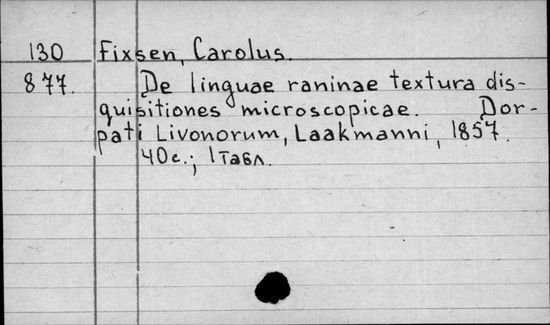 130 Fixsen, Carolus.
877. De linguae raninae textura dis-
quisitiones microscopicae. Dor-
pati Livonorum, Laakmanni, 1857.
40с.; 1 табл.